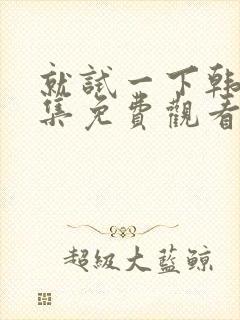 就試一下韩
集免費觀看
超級大藍鲸